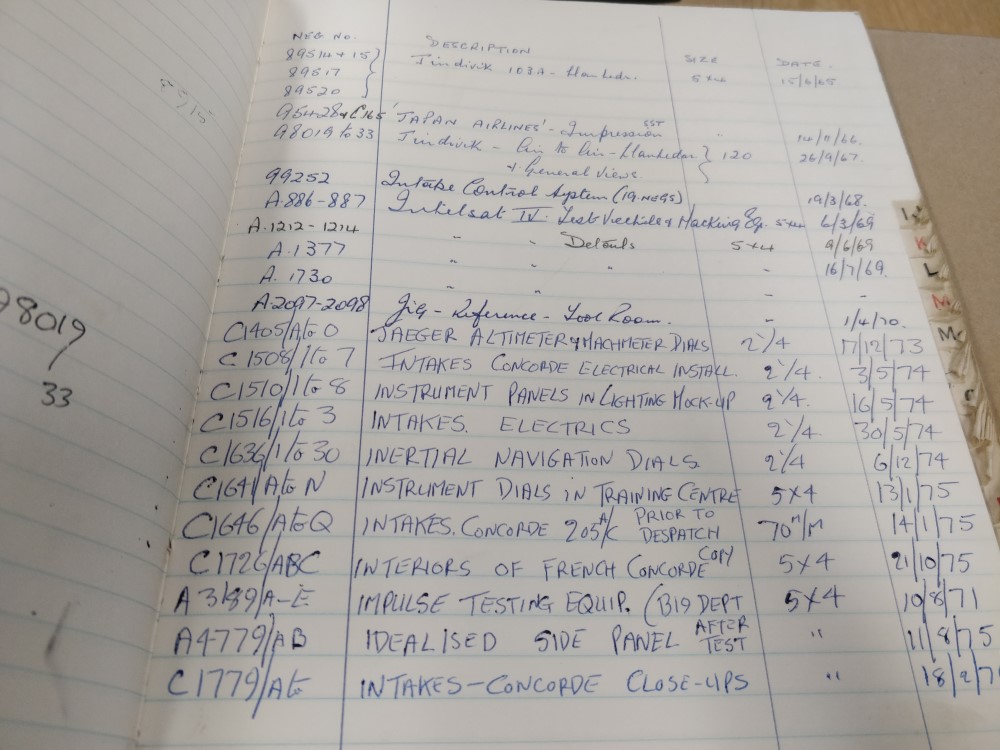 NEG NO. DESCRIPTION SIZE DATE.
89514 + 15 Jindivik 103A - 5x4 15/6/65
89517
89520
95428 + C165 'JAPAN AIRLINES' - SST Impression " 14/9/66.
98019 to 33 Jindivik - to 120 26/9/67.
+ General Views
99252 Intake Control System (19. NEGS) 19/3/68.
A.886-887 Intelsat IV: Test Vechile & Eq. 5x4 6/3/69
A.1212-1214 " " Details 5x4 9/6/69
A.1377 " " " - 16/7/69.
A.1730 " " " - -
A.2097-2098 Jig - Reference - Tool Room. - 1/4/70.
C1405/A to O JAEGER ALTIMETER & MACHMETER DIALS 2¼ 17/12/73
C1508/1 to 7 INTAKES CONCORDE ELECTRICAL INSTALL. 2¼. 3/5/74
C1510/1 to 8 INSTRUMENT PANELS IN LIGHTING MOCK-UP 2¼. 16/5/74
C1516/1 to 3 INTAKES. ELECTRICS 2¼ 30/5/74
C1636/1 to 30 INERTIAL NAVIGATION DIALS 2¼ 6/12/74
C1641/A to N INSTRUMENT DIALS IN TRAINING CENTRE 5x4 13/1/75
C1646/A to Q INTAKES. CONCORDE 205 A/C PRIOR TO DESPATCH 70 M/M 14/1/75
C1726/ABC INTERIORS OF FRENCH CONCORDE COPY 5x4 21/10/75
A3189/A-E IMPULSE TESTING EQUIP. (B19 DEPT 5x4 10/8/71
A4779/AB IDEALISED SIDE PANEL AFTER TEST " 11/8/75
C1779/A to INTAKES-CONCORDE CLOSE-UPS " 18/2/7
98019
33
K
L
M
Mc